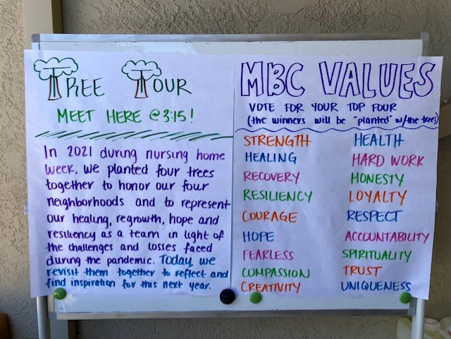 TREE TOUR
MEET HERE @ 3:15!
In 2021 during nursing home
week, we planted four trees
together to honor our four
neighborhoods and to represent
our healing, regrowth, hope and
resiliency as a team in light of
the challenges and losses faced
during the pandemic. Today, we
revisit them together to reflect and
find inspiration for this next year.
MBC VALUES
VOTE FOR YOUR TOP FOUR
(the winners will be "planted" w/the trees)
STRENGTH
HEALING
RECOVERY
RESILIENCY
COURAGE
HOPE
FEARLESS
COMPASSION
CREATIVITY
HEALTH
HARD WORK
HONESTY
LOYALTY
RESPECT
ACCOUNTABILITY
SPIRITUALITY
TRUST
UNIQUENESS